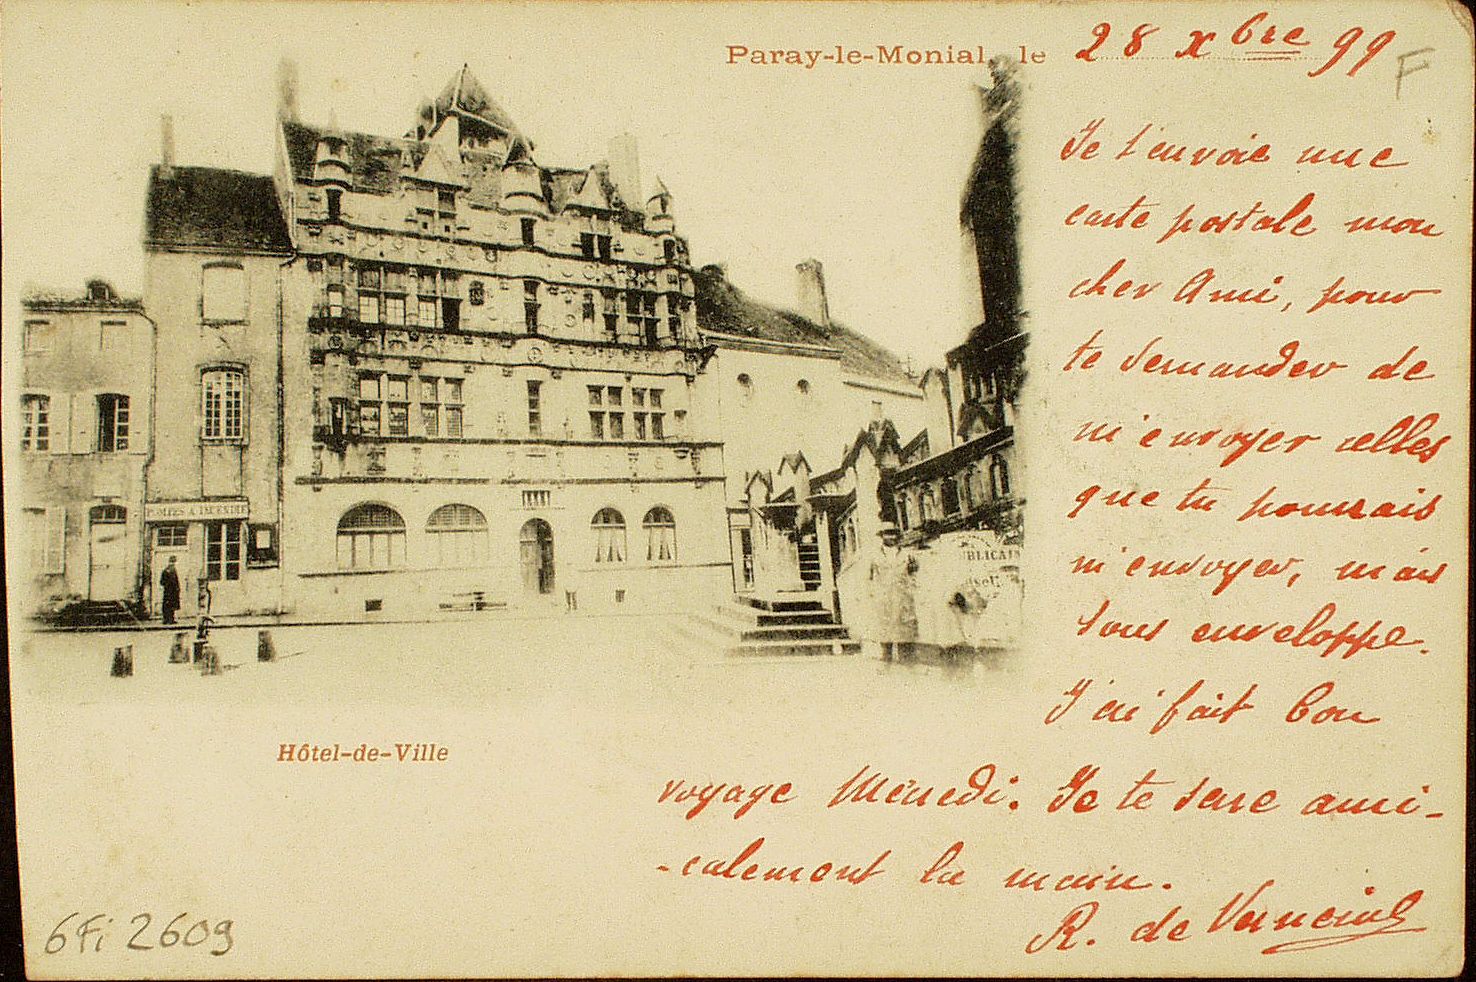 Paray-le-Monial, le 28 xbre 99
F
Je t'envoie une
carte postale mon
cher Ami, pour
te demander de
m'envoyer celles
que tu pourrais
m'envoyer, mais
sous enveloppe.
J'ai fait bon
voyage Mercredi. Je te serre ami-
-calement la main.
R. de
POMPES A INCENDIE
Hôtel-de-Ville
6Fi 2609